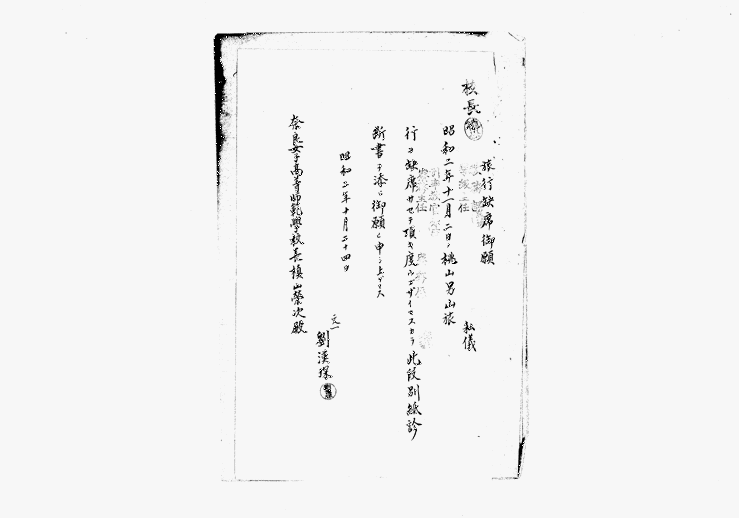 旅行缺席御願
私儀
昭和二年十一月二日、桃山男山旅
行ヲ缺席サセテ頂キ度ウゴザイマスカラ此段別紙診
斷書ヲ添ヘ御願ヒ申シ上ゲマス
昭和二年十月二十四日
文一
劉漢琛
奈良女子高等師範學校長槇山榮次殿
校長